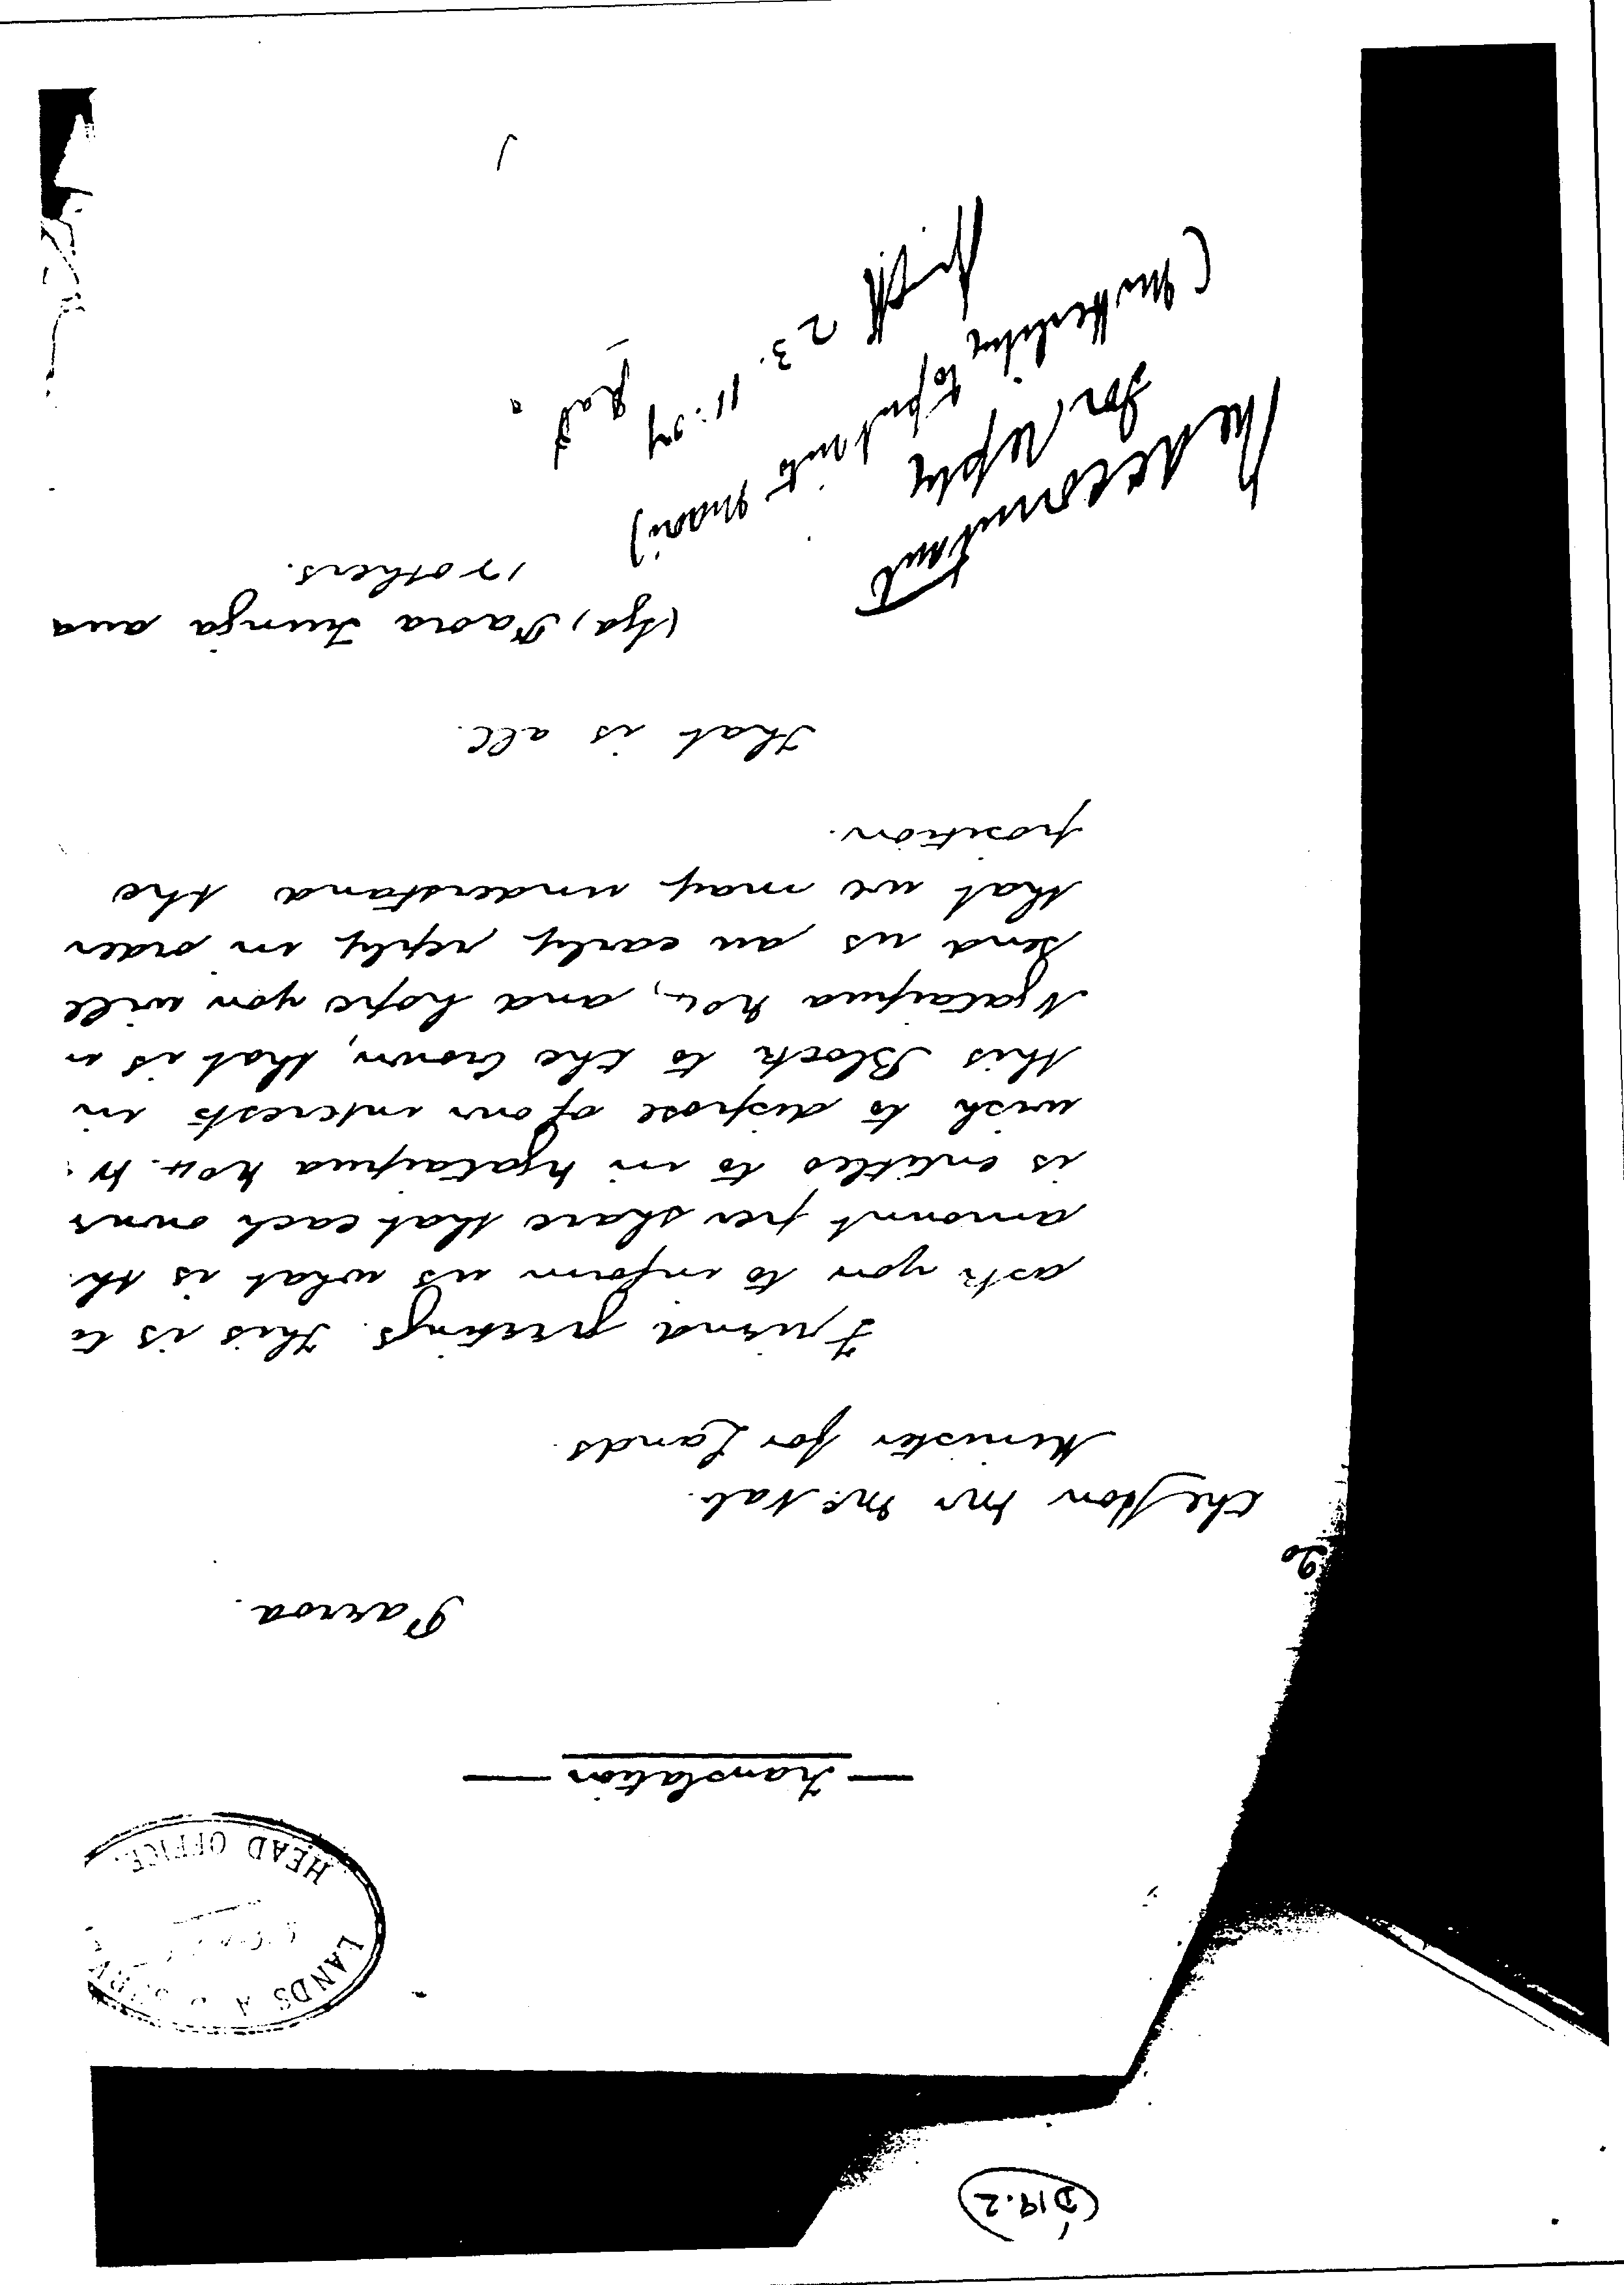 D19.2
LANDS A
HEAD OFFICE.
— Translation —
Paeroa.
To
The Hon Mr McNab.
Minister for Lands.
Friend greetings. This is to
ask you to inform us what is th
amount per share that each owner
is entitled to in Ngataipua No 4. W
wish to dispose of our interests in
this Block to the Crown, that is in
Ngataipua No 4, and hope you will
send us an early reply in order
that we may understand the
position.
That is all.
(sgd)
17 others.
The Accountant
for reply
to put into Maori)
23.11.07